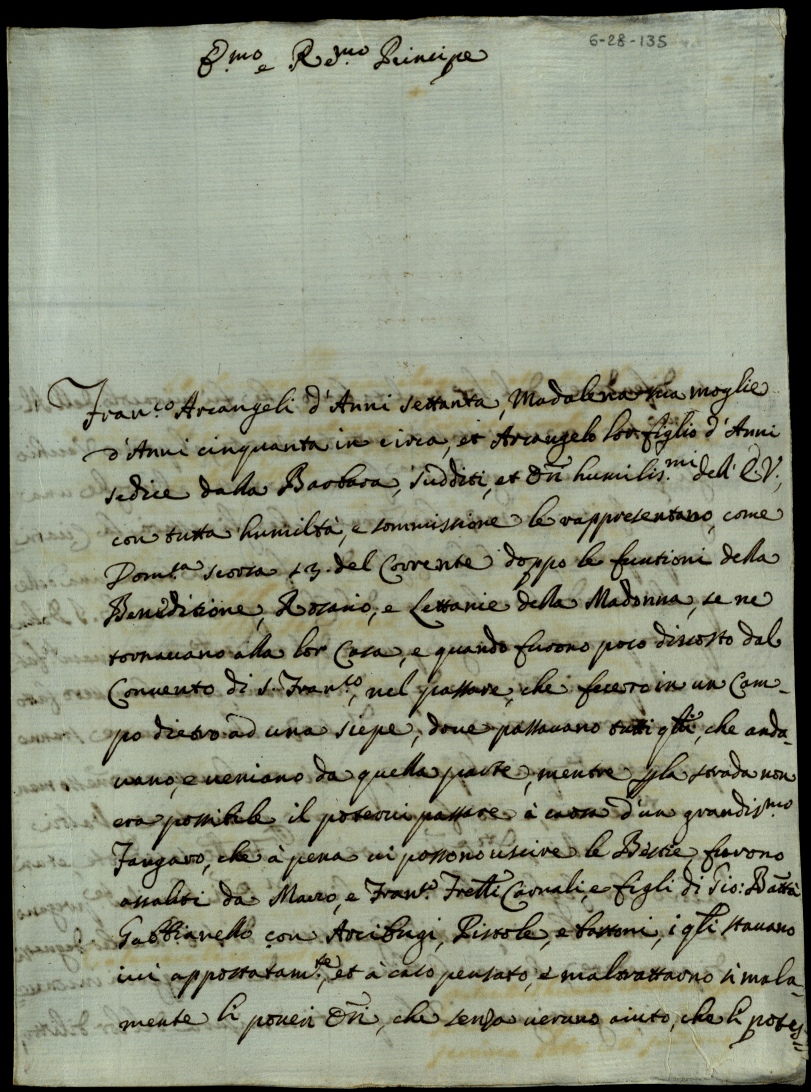 6-28-135
E.mo e R.mo Principe
Fran.co Arcangeli d'Anni settanta, Madalena sua moglie
d'Anni cinquanta in circa, et Arcangelo lor figlio d'Anni
sedice dalla Barbara, sudditi, et Ori humilis.mi dell' E.V.,
con tutta humiltà, e sommissione le rappresentano, come
Dom.ca scorsa 13. del Corrente doppo le funtioni della
Benedizione, Rosario, e Lettanie della Madonna, se ne
tornavano alla lor Casa, e quando furono poco discosto dal
Convento di S. Fran.co, nel passare, che fecero in un Cam-
po dietro ad una siepe, dove passavano tutti q.lli, che anda-
vano, e veniano da quella parte, mentre p la strada non
era possibile il potervi passare à causa d'un grandis.mo
Fangaro, che à pena vi possono uscire le Bestie, furono
assaliti da Marco, e Fran.co Fr̃elli Carnali, e figli di Gio: Batta
Gabbianello con Arcibugi, Pistole, e bastoni, i q.li stavano
ivi appostatam.te, et à caso pensato, e maltrattaono si mala-
mente li poveri Ori, che senza veruno aiuto, che li potes-